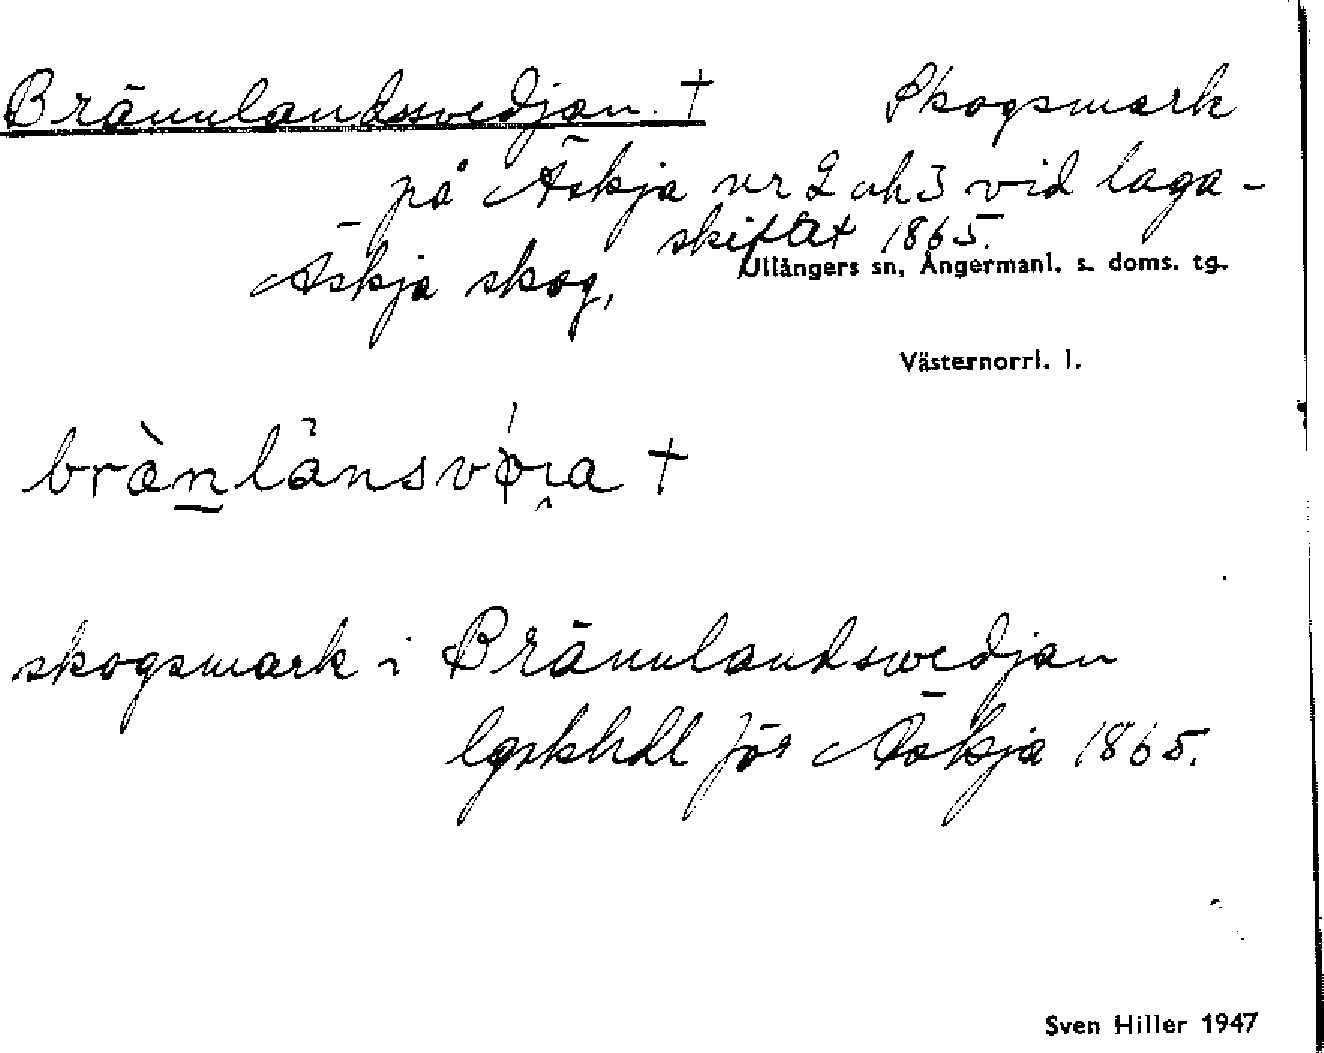 Brännlandssvedjan. † Skogsmark
på Äskja nr 2 och 3 vid laga-
skiftet 1865.
Äskja skog, Ullångers sn, Ångermanl. s. doms. tg.
Västernorrl. l.
skogsmark i Brännlandswedjan
lgskhdl för Äskja 1865.
Sven Hiller 1947